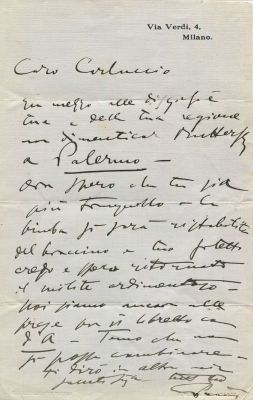 Via Verdi, 4,
Milano.
Caro Carluccio
In mezzo alle disgrazie
tua e della tua regione
non dimenticai Butterfly
a Palermo —
ora spero che tu sia
più tranquillo e la
bimba si sarà ristabilita
del braccino e tuo
credo e spero ritornato
—
noi siamo ancora alle
prese per il libretto con
d'A — Temo che non
si possa combinare —
ti dirò in altra mia
tutto